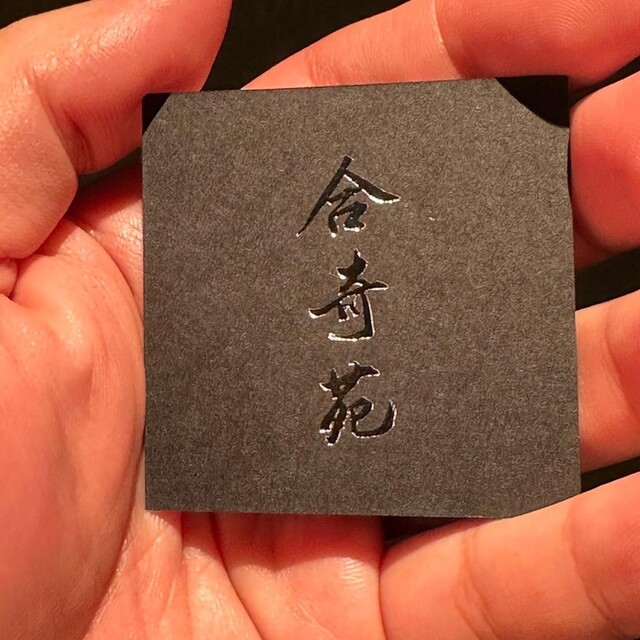 合奇苑